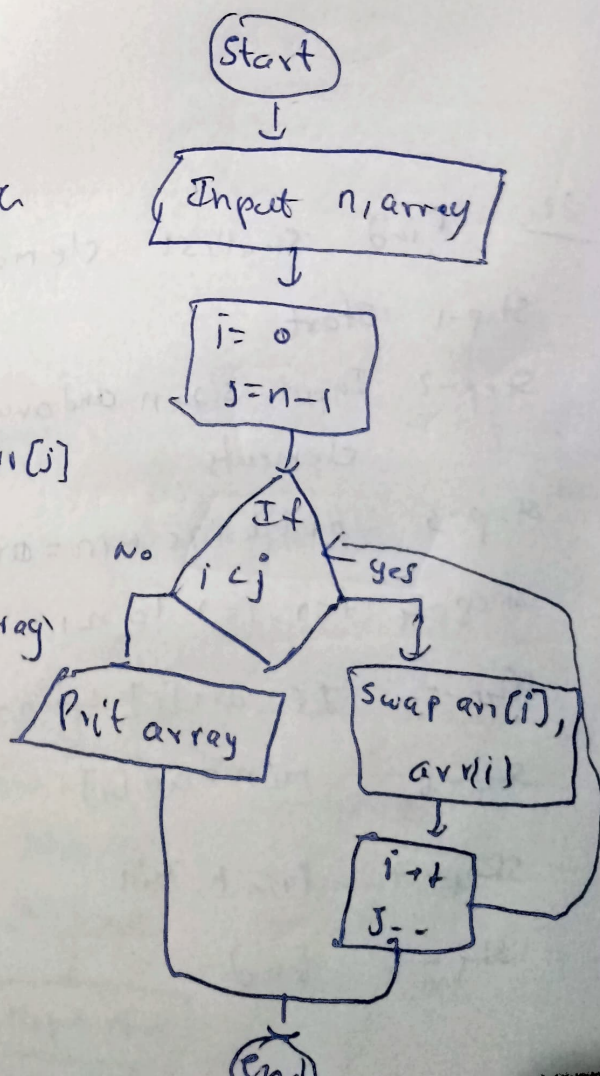 Start
Input n, array
i= 0
J=n-1
If
i < j
No
yes
Prit array
Swap arr[i],
arr[i]
i++
J--
End